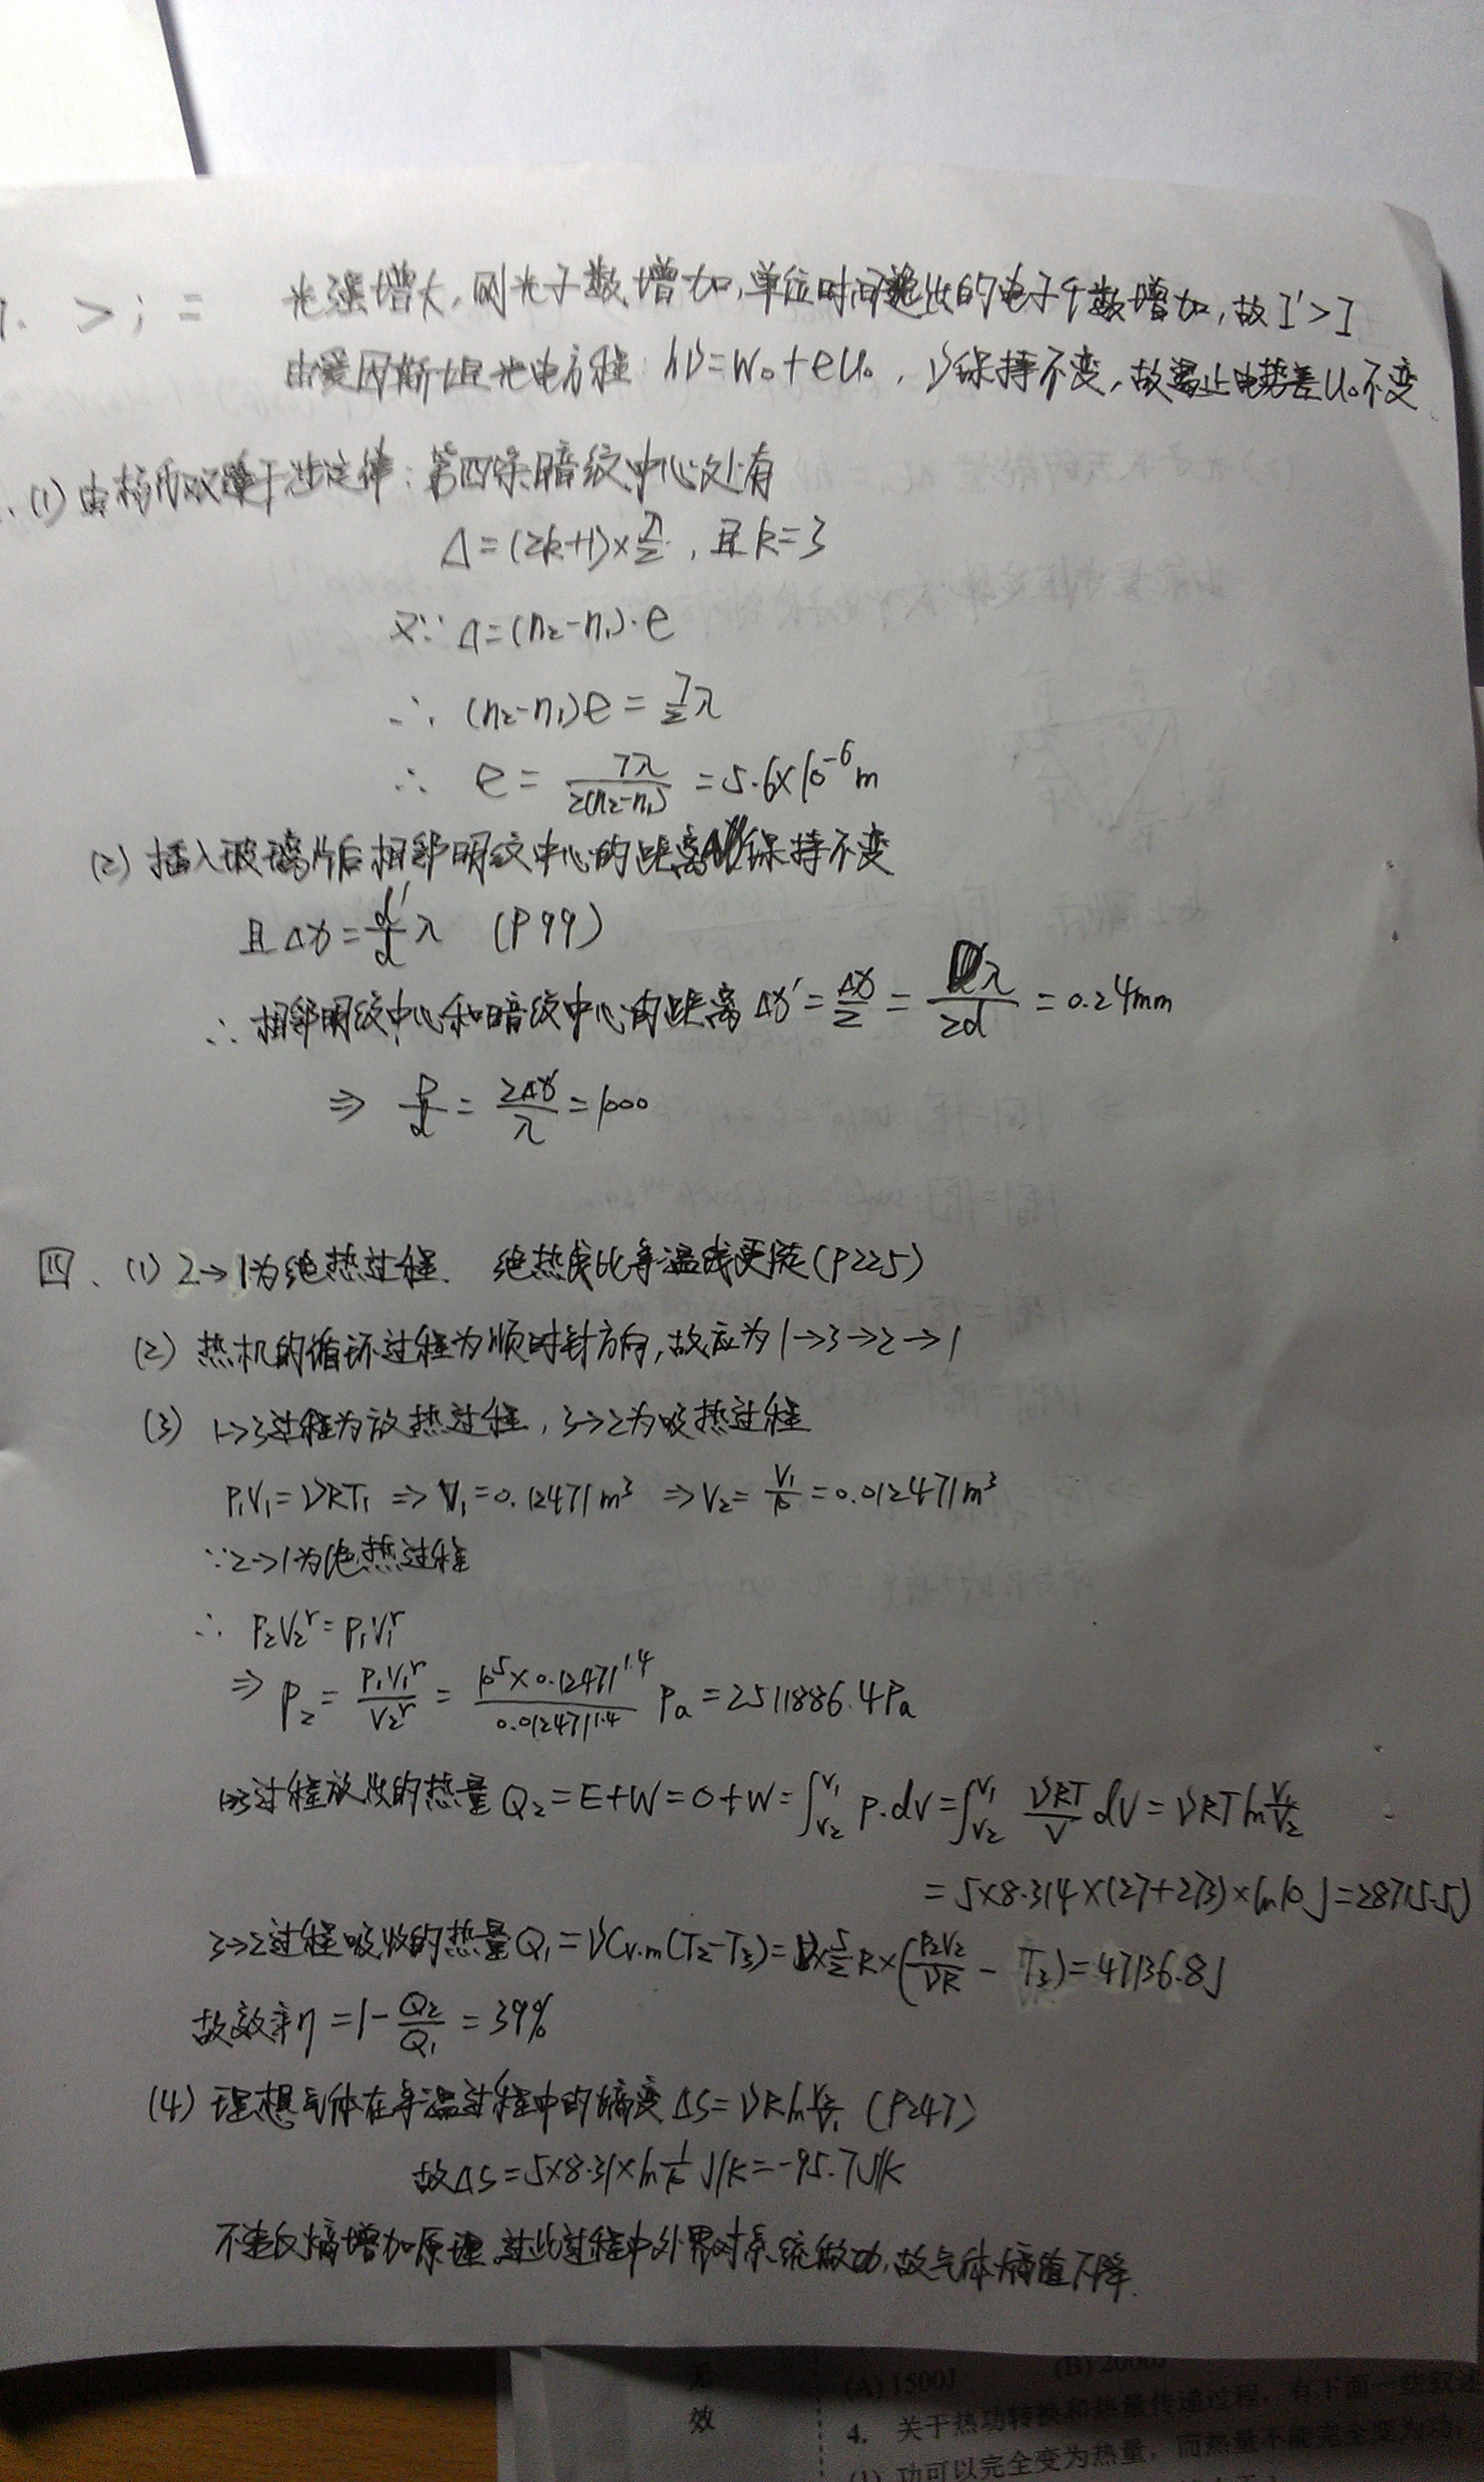 > ; = 光强增大,则光子数增加,单位时间逸出的电子个数增加,故I'>I
由爱因斯坦光电方程 hν=W₀+eU₀,ν保持不变,故遏止电势差U₀不变
(1) 由杨氏双缝干涉定律:第四条暗纹中心处有
Δ=(2k+1)×λ/2,且k=3
又∵ Δ=(n₂-n₁)·e
∴ (n₂-n₁)e=7/2λ
∴ e=7λ/2(n₂-n₁)=5.6×10⁻⁶m
(2) 插入玻璃片后相邻明纹中心的距离保持不变
且Δx=d'/dλ (P99)
∴ 相邻明纹中心和暗纹中心的距离Δx'=Δx/2=λ/2d=0.24mm
⇒ D/d=2Δx'/λ=1000
四、(1) 2→1为绝热过程. 绝热线比等温线更陡(P225)
(2) 热机的循环过程为顺时针方向,故应为1→3→2→1
(3) 1→3过程为放热过程,3→2为吸热过程
P₁V₁=νRT₁ ⇒ V₁=0.12471m³ ⇒ V₂=V₁/10=0.012471m³
∵2→1为绝热过程
∴ P₂V₂ʳ=P₁V₁ʳ
⇒ P₂=P₁V₁ʳ/V₂ʳ=10⁵×0.12471^1.4/0.012471^1.4 Pa=2511886.4Pa
1→3过程放出的热量Q₂=E+W=0+W=∫_V₂^V₁ P.dV=∫_V₂^V₁ νRT/V dV=νRTlnV₁/V₂
=5×8.314×(27+273)×ln10J=28715.5J
3→2过程吸收的热量Q₁=νCv.m(T₂-T₃)=ν×5/2R×(P₂V₂/νR-T₃)=47136.8J
故效率η=1-Q₂/Q₁=39%
(4) 理想气体在等温过程中的熵变ΔS=νRlnV₂/V₁ (P247)
故ΔS=5×8.31×ln1/10 J/K=-95.7J/K
不违反熵增加原理,过此过程中外界对系统做功,故气体熵值下降.
无
效
(A) 1500J (B) 2000J
4. 关于热功转换和热量传递过程,有下面一些叙述
(1) 功可以完全变为热量,而热量不能完全变为功